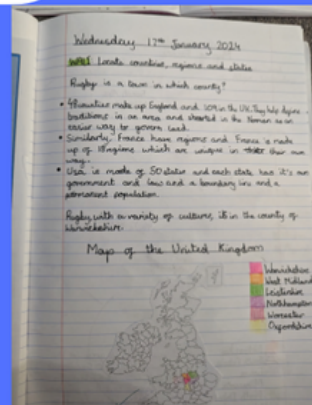 Wednesday 17th January 2024
WALT Locate countries, regions and states
Rugby is a town in which county?
• 48 counties make up England and in the UK. They help define
traditions in an area and started in the Roman as an
easier way to govern land.
• Similarly, France have regions and France is made
up of 18 regions which are unique in their own
way.
• Usa is made of 50 states and each state has it's own
government and law and a boundary line and a
permanent population.
Rugby, with a variety of culture, is in the county of
Warwickshire.
Map of the United Kingdom
Warwickshire
West Midlands
Leistershire
Northampton
Worcester
Oxfordshire